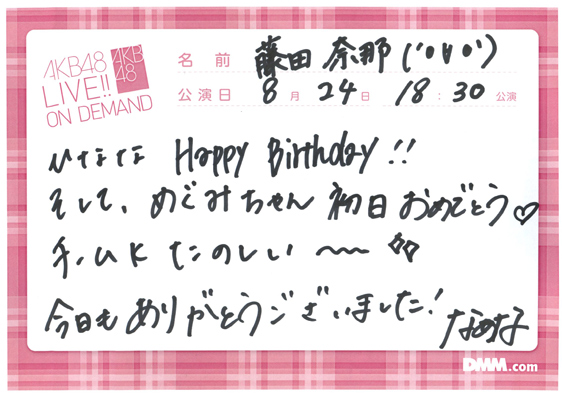 AKB48
LIVE!!
ON DEMAND
AKB
48
名前 藤田奈那('θvθ')
公演日 8月24日 18:30公演
ひなな Happy Birthday!!
そして、めぐみちゃん初日おめでとう♡
チームK たのしい〜〜
今日もありがとうございました!
なぁな
DMM.com